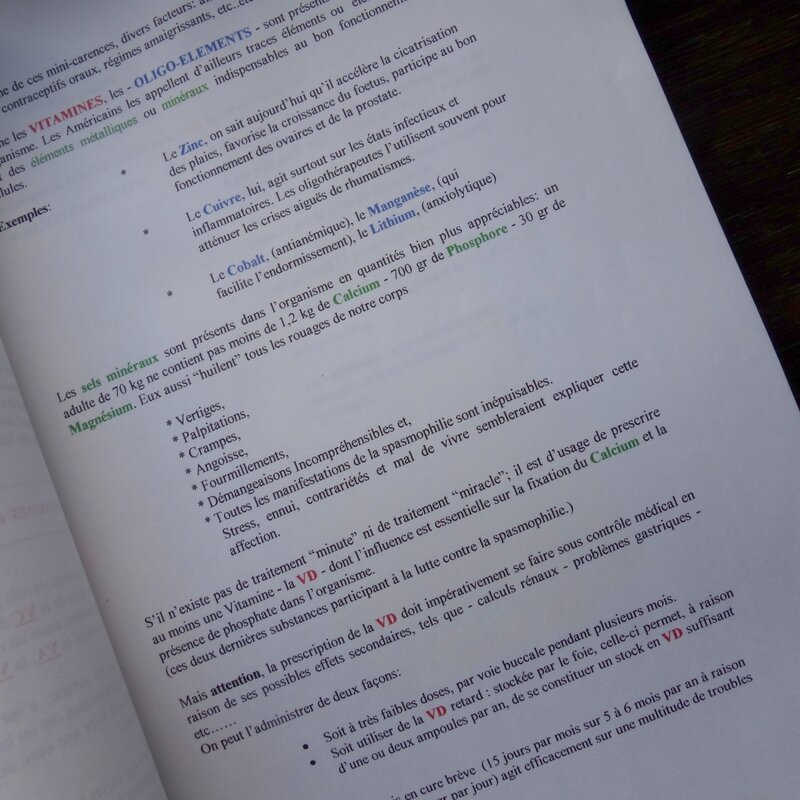 de ces mini-carences, divers facteurs:
contraceptifs oraux, régimes amaigrissants, etc..
les VITAMINES, les - OLIGO-ELEMENTS - sont
Les Américains les appellent d'ailleurs traces éléments ou
des éléments métalliques ou minéraux indispensables au bon
Exemples:
* Le Zinc, on sait aujourd'hui qu'il accélère la cicatrisation
des plaies, favorise la croissance du foetus, participe au bon
fonctionnement des ovaires et de la prostate.
* Le Cuivre, lui, agit surtout sur les états infectieux et
inflammatoires. Les oligothérapeutes l'utilisent souvent pour
atténuer les crises aiguës de rhumatismes.
* Le Cobalt, (antianémique), le Manganèse, (qui
facilite l'endormissement), le Lithium, (anxiolytique)
Les sels minéraux sont présents dans l'organisme en quantités bien plus appréciables: un
adulte de 70 kg ne contient pas moins de 1,2 kg de Calcium - 700 gr de Phosphore - 30 gr de
Magnésium. Eux aussi "huilent" tous les rouages de notre corps
* Vertiges,
* Palpitations,
* Crampes,
* Angoisse,
* Fourmillements,
* Démangeaisons Incompréhensibles et,
* Toutes les manifestations de la spasmophilie sont inépuisables.
Stress, ennui, contrariétés et mal de vivre sembleraient expliquer cette
affection.
S'il n'existe pas de traitement "minute" ni de traitement "miracle"; il est d'usage de prescrire
au moins une Vitamine - la VD - dont l'influence est essentielle sur la fixation du Calcium et la
présence de phosphate dans l'organisme.
(ces deux dernières substances participent à la lutte contre la spasmophilie.)
Mais attention, la prescription de la VD doit impérativement se faire sous contrôle médical en
raison de ses possibles effets secondaires, tels que - calculs rénaux - problèmes gastriques -
etc......
On peut l'administrer de deux façons:
• Soit à très faibles doses, par voie buccale pendant plusieurs mois.
• Soit utiliser de la VD retard : stockée par le foie, celle-ci permet, à raison
d'une ou deux ampoules par an, de se constituer un stock en VD suffisant
en cure brève (15 jours par mois sur 5 à 6 mois par an à raison
par jour) agit efficacement sur une multitude de troubles